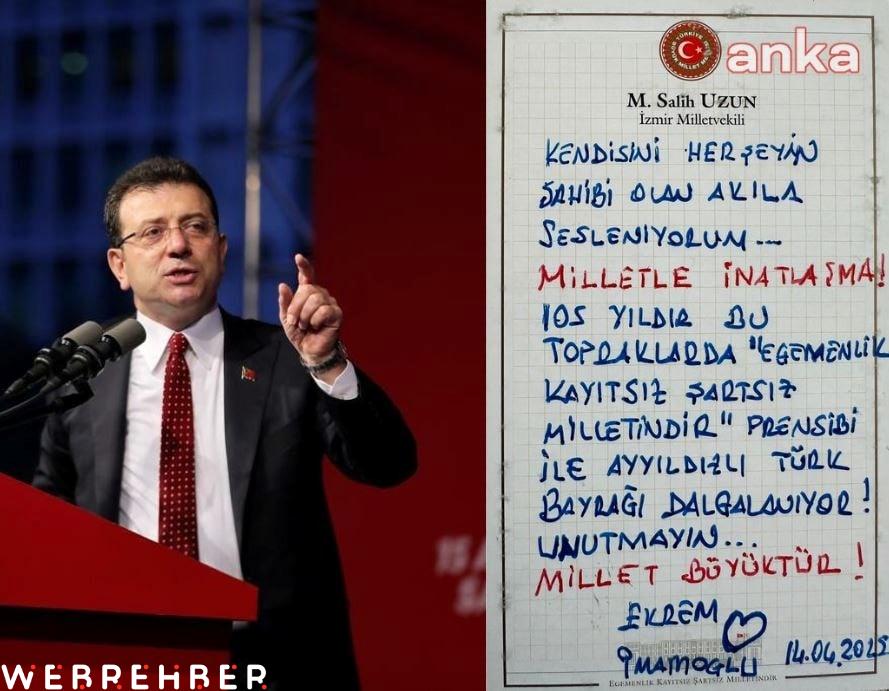 anka
M. Salih UZUN
İzmir Milletvekili
KENDİSİNİ HERŞEYİN
SAHİBİ OLAN AKILA
SESLENİYORUM...
MİLLETLE İNATLAŞMA!
105 YILDIR BU
TOPRAKLARDA "EGEMENLİK
KAYITSIZ ŞARTSIZ
MİLLETİNDİR" PRENSİBİ
İLE AYYILDIZLI TÜRK
BAYRAĞI DALGALANIYOR!
UNUTMAYIN...
MİLLET BÜYÜKTÜR!
EKREM
İMAMOĞLU 14.04.2025
EGEMENLİK KAYITSIZ ŞARTSIZ MİLLETİNDİR
WEBREHBER